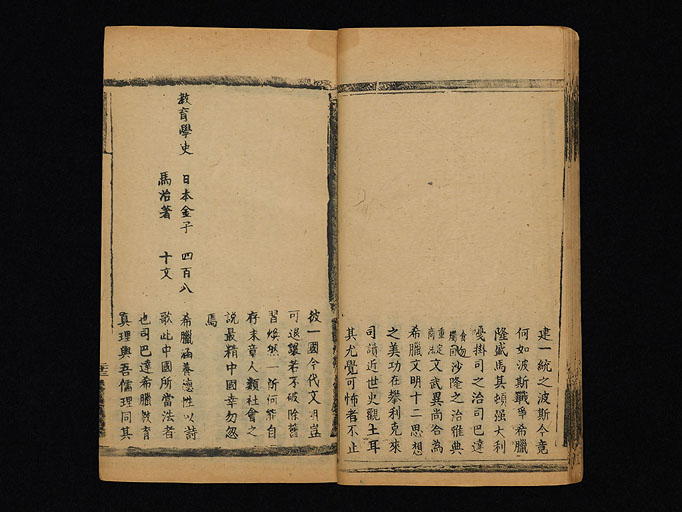 建一統之波斯今竟
何如波斯戰爭希臘
隆盛焉其頓强大利
憂掛司之治司巴達
沙隆之治雅典
重定商法文武異尚合為
希臘文明十二思想
之美功在攀利克來
司讀近世史觀土耳
其尤覺可怖者不止
彼一國今代文明豈
可退讓若不破除舊
習煥然一新何能自
存末章人類社會之
說最精中國幸勿忽
焉
教育學史 日本金子 四百八
馬治著 十文
希臘涵養德性以詩
歌此中國所當法者
也司巴達希臘教育
真理與吾儒理同其